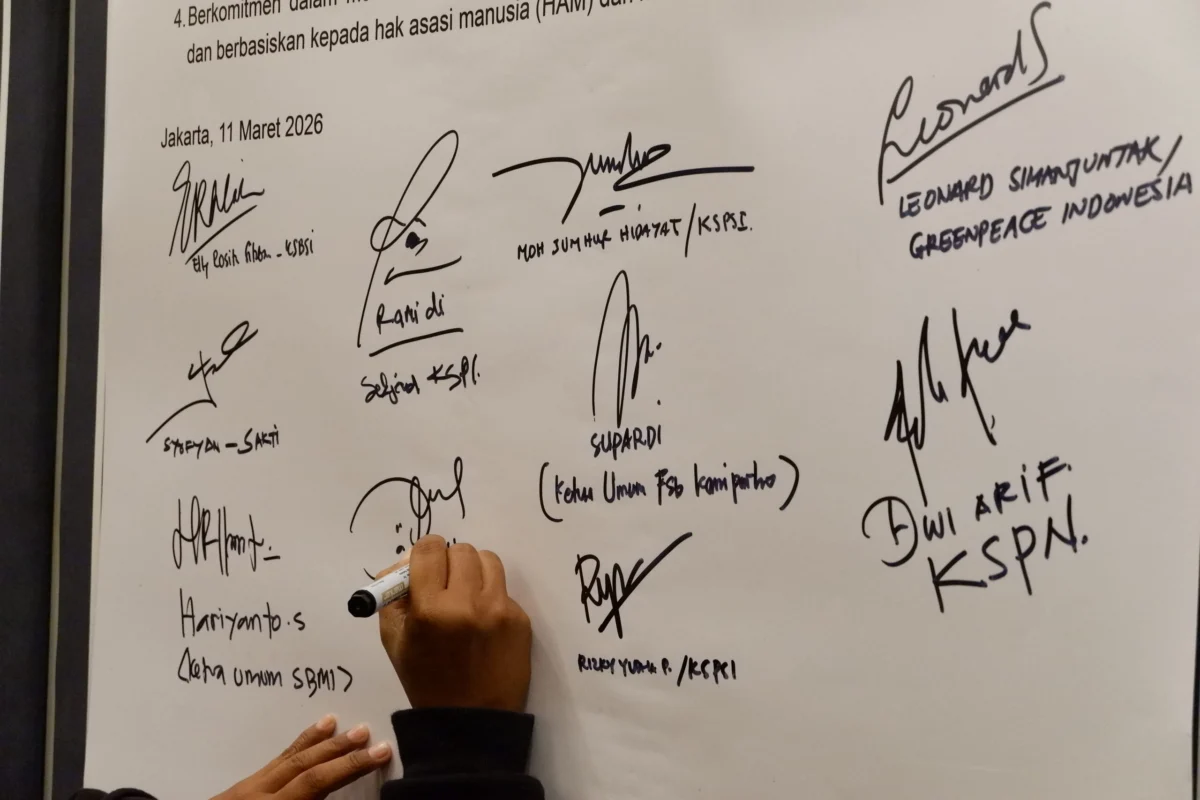 4. Berkomitmen dalam
dan berbasiskan kepada hak asasi manusia (HAM) dan
Jakarta, 11 Maret 2026
Elly Rosita - KSBSI
Ramidi
Sekjend KSPI.
MOH JUMHUR HIDAYAT/KSPSI.
LeonardS
LEONARD SIMANJUNTAK/
GREENPEACE INDONESIA
SYOFYAN - SAKTI
SUPARDI
(Ketua Umum Fsb Kamiparho)
DWI ARIF.
KSPN.
Hariyanto.s
<Ketua umum SBMI>
RIZKY P./KSPSI